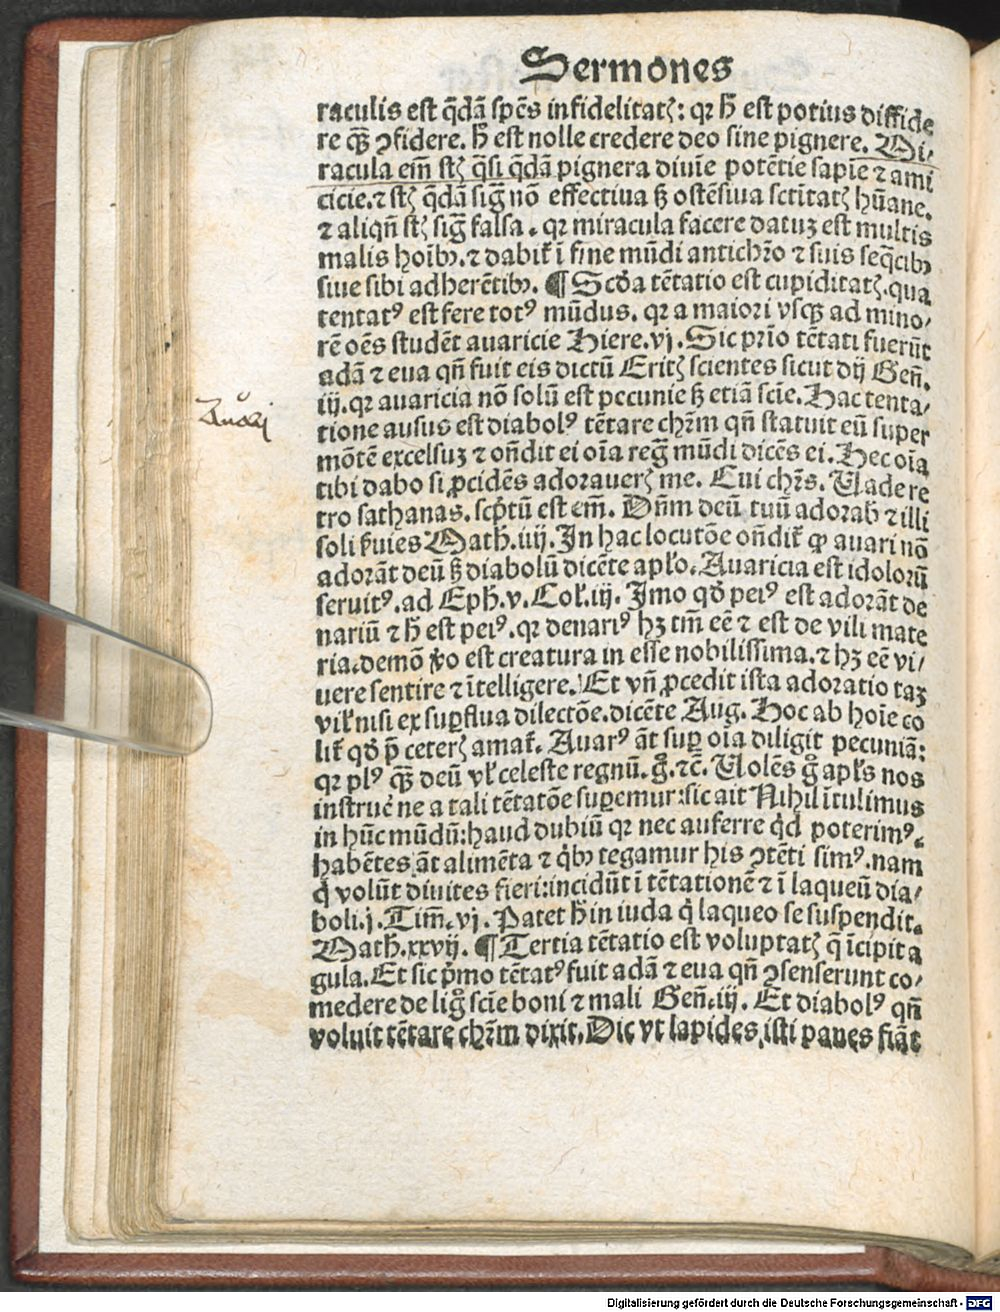 Sermones
raculis est q̃dã spẽs infidelitatꝭ: qꝛ h̄ est potius diffide
re qꝫ̃ ↄfidere. h̄ est nolle credere deo sine pignere. Mi⸗
racula em̃ stꝭ q̃si q̃dã pignera diuĩe potẽtie sapiẽ ⁊ ami
cicie. ⁊ stꝭ q̃dã sig̃ nõ effectiua sꝫ ostẽsiua sctĩtatꝭ hũane.
⁊ aliqñ stꝭ sig̃ falsa. qꝛ miracula facere datuꝫ est multis
malis hoĩbꝰ. ⁊ dabit̃ ĩ fine mũdi antichꝛ̃o ⁊ suis seq̃cibꝰ
siue sibi adherẽtibꝰ. ¶ Scd̃a tẽtatio est cupiditatꝭ. qua
tentatꝰ est fere totꝰ mũdus. qꝛ a maioꝛi vsqꝫ ad mino⸗
rẽ oẽs studẽt auaricie Hiere. vj. Sic pꝛĩo tẽtati fuerũt
adã ⁊ eua qñ fuit eis dictũ Eritꝭ scientes sicut dij Geñ.
iij. qꝛ auaricia nõ solũ est peccunie sꝫ etiã scĩe. Hac tenta⸗
tione ausus est diabolꝰ tẽtare chꝛ̃m qñ statuit eũ super
mõtẽ excelsuꝫ ⁊ oñdit ei oĩa reg̃ mũdi dicẽs ei. Hec oĩa
tibi dabo si ꝓcidẽs adoraueꝛꝭ me. Cui chꝛ̃s. Uade re
tro sathanas. scp̃tũ est em̃. Dñm deũ tuũ adorab̃ ⁊ illi
soli ẜuies Math̃. iiij. In hac locutõe oñdit̃ ꝙ auari nõ
adorãt deũ sꝫ diabolũ dicẽte apl̃o. Auaricia est idolorũ
seruitꝰ. ad Eph̃. v. Col̃. iij. Imo qd̃ peiꝰ est adorãt de
nariũ ⁊ h̄ est peiꝰ. qꝛ denariꝰ hꝫ tm̃ eẽ ⁊ est de vili mate
ria. demõ ꝟo est creatura in esse nobilissima. ⁊ hꝫ eẽ vi⸗
uere sentire ⁊ ĩtelligere. Et vñ ꝓcedit ista adoratio taꝫ
vil̃ nisi ex suꝑflua dilectõe. dicẽte Aug. Hoc ab hoĩe co
lit̃ qd̃ p̃ ceterꝭ amat̃. Auarꝰ ãt suꝑ oĩa diligit pecuniã:
qꝛ plꝰ qꝫ̃ deũ vl̃ celeste regnũ. g̊. ⁊c̃. Uolẽs g̊ apl̃s nos
instrue᷒ ne a tali tẽtatõe suꝑemur: sic ait Nihil ĩtulimus
in hũc mũdũ: haud dubiũ qꝛ nec auferre qͥd poterimꝰ.
habẽtes ãt alimẽta ⁊ qͥbꝰ tegamur his ↄtẽti simꝰ. nam
qͥ volũt diuites fieri: incidũt ĩ tẽtationẽ ⁊ ĩ laqueũ dia⸗
boli. j. Tim̃. vj. Patet h̄ in iuda qͥ laqueo se suspendit.
Math̃. xxvij. ¶ Tertia tẽtatio est voluptatꝭ q̃ ĩcipit a
gula. Et sic pͥmo tẽtatꝰ fuit adã ⁊ eua qñ ↄsenserunt co⸗
medere de lig̊ scĩe boni ⁊ mali Geñ. iij. Et diabolꝰ qñ
voluit tẽtare chꝛ̃m dixit. Dic vt lapides isti panes fiãt
Digitalisierung gefördert durch die Deutsche Forschungsgemeinschaft - DFG